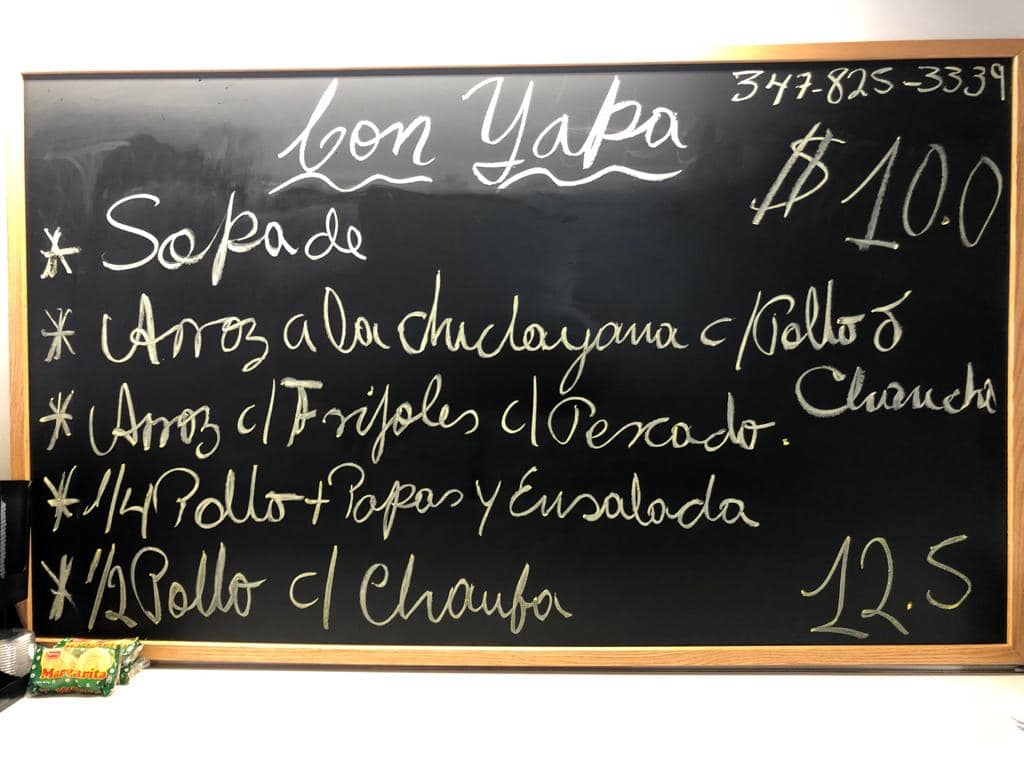 347-825-3339
Con Yapa
$10.0
* Sopa de
* Arroz a la chiclayana c/Pollo ó
Chancho
* Arroz c/Frijoles c/Pescado.
* 1/4 Pollo + Papas y Ensalada
* 1/2 Pollo c/ Chaufa
12.5
Margarita